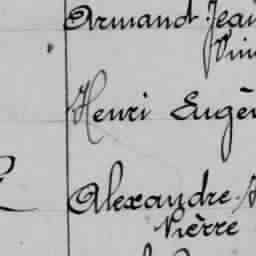 Armand Jean
Henri Eugèn
Alexandre
Pierre